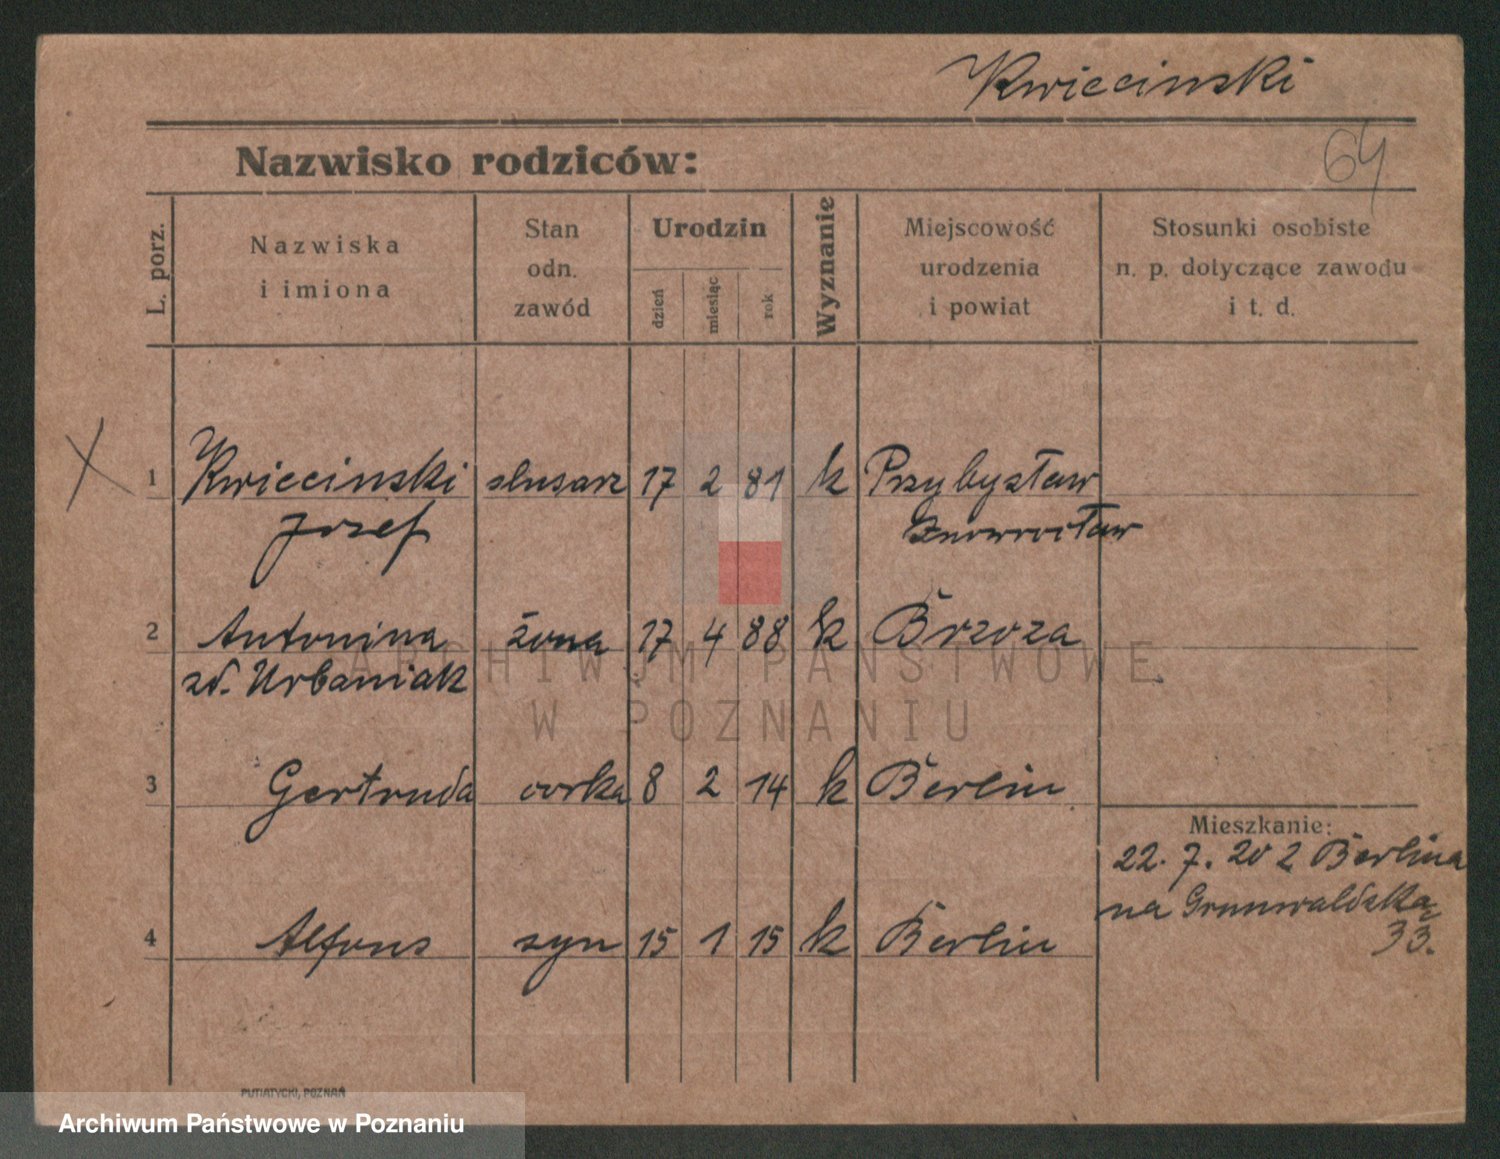 Kwiecinski
64
Nazwisko rodziców:
L. porz.
Nazwiska
i imiona
Stan
odn.
zawód
Urodzin
dzień
miesiąc
rok
Wyznanie
Miejscowość
urodzenia
i powiat
Stosunki osobiste
n. p. dotyczące zawodu
i t. d.
1 Kwiecinski slusarz 17 2 81 k Przybysław
Jozef Inowrocław
2 Antonina żona 17 4 88 k Brzoza
zd. Urbaniak
3 Gertruda corka 8 2 14 k Berlin
Mieszkanie:
22. 7. 20 z Berlina
na Grunwaldską
33.
4 Alfons syn 15 1 15 k Berlin
PUTIATYCKI, POZNAŃ
ARCHIWUM PAŃSTWOWE
W POZNANIU
Archiwum Państwowe w Poznaniu